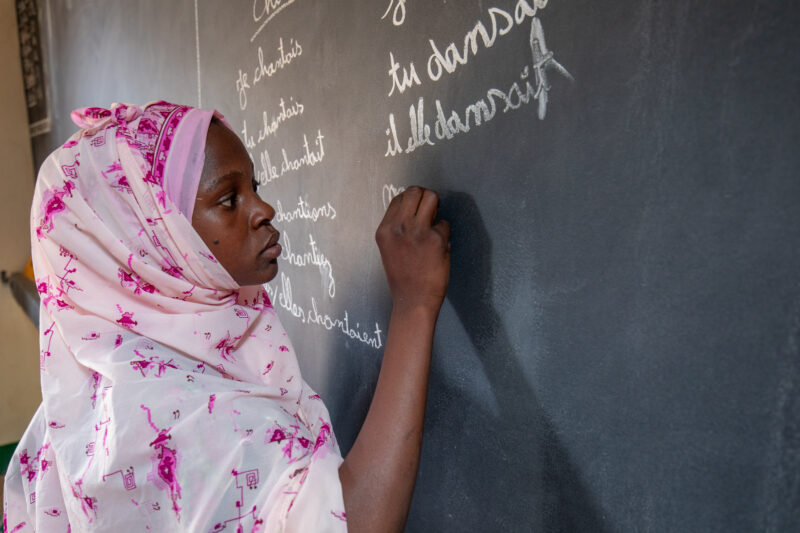 je chantais
tu chantais
elle chantait
chantions
chantiez
elles chantaient
tu dansai
il elle dansait